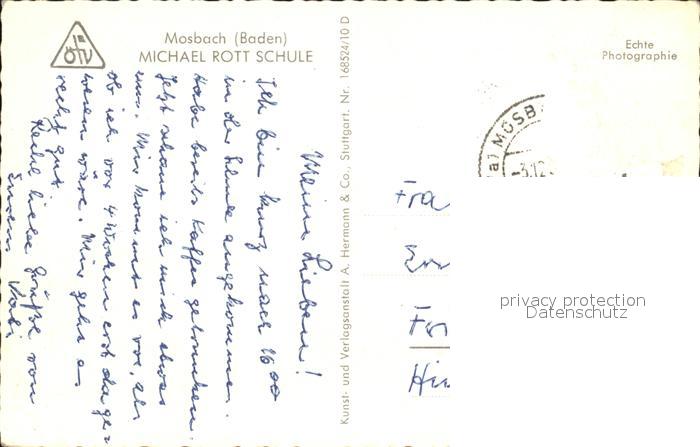 Mosbach (Baden)
MICHAEL ROTT SCHULE
Echte
Photographie
Kunst- und Verlagsanstalt A. Hermann & Co., Stuttgart. Nr. 168524/10 D
MOSB
Meine Lieben!
Ich bin kurz nach 16 00
in der Schule angekommen.
Habe bereits Kaffee getrunken.
Jetzt schaue ich mich etwas
um. Mir kommt es vor, als
ob ich vor 4 Wochen erst da ge-
wesen wäre. Mir geht es
recht gut.
Recht liebe Grüße von
Eurem
Fra
privacy protection
Datenschutz